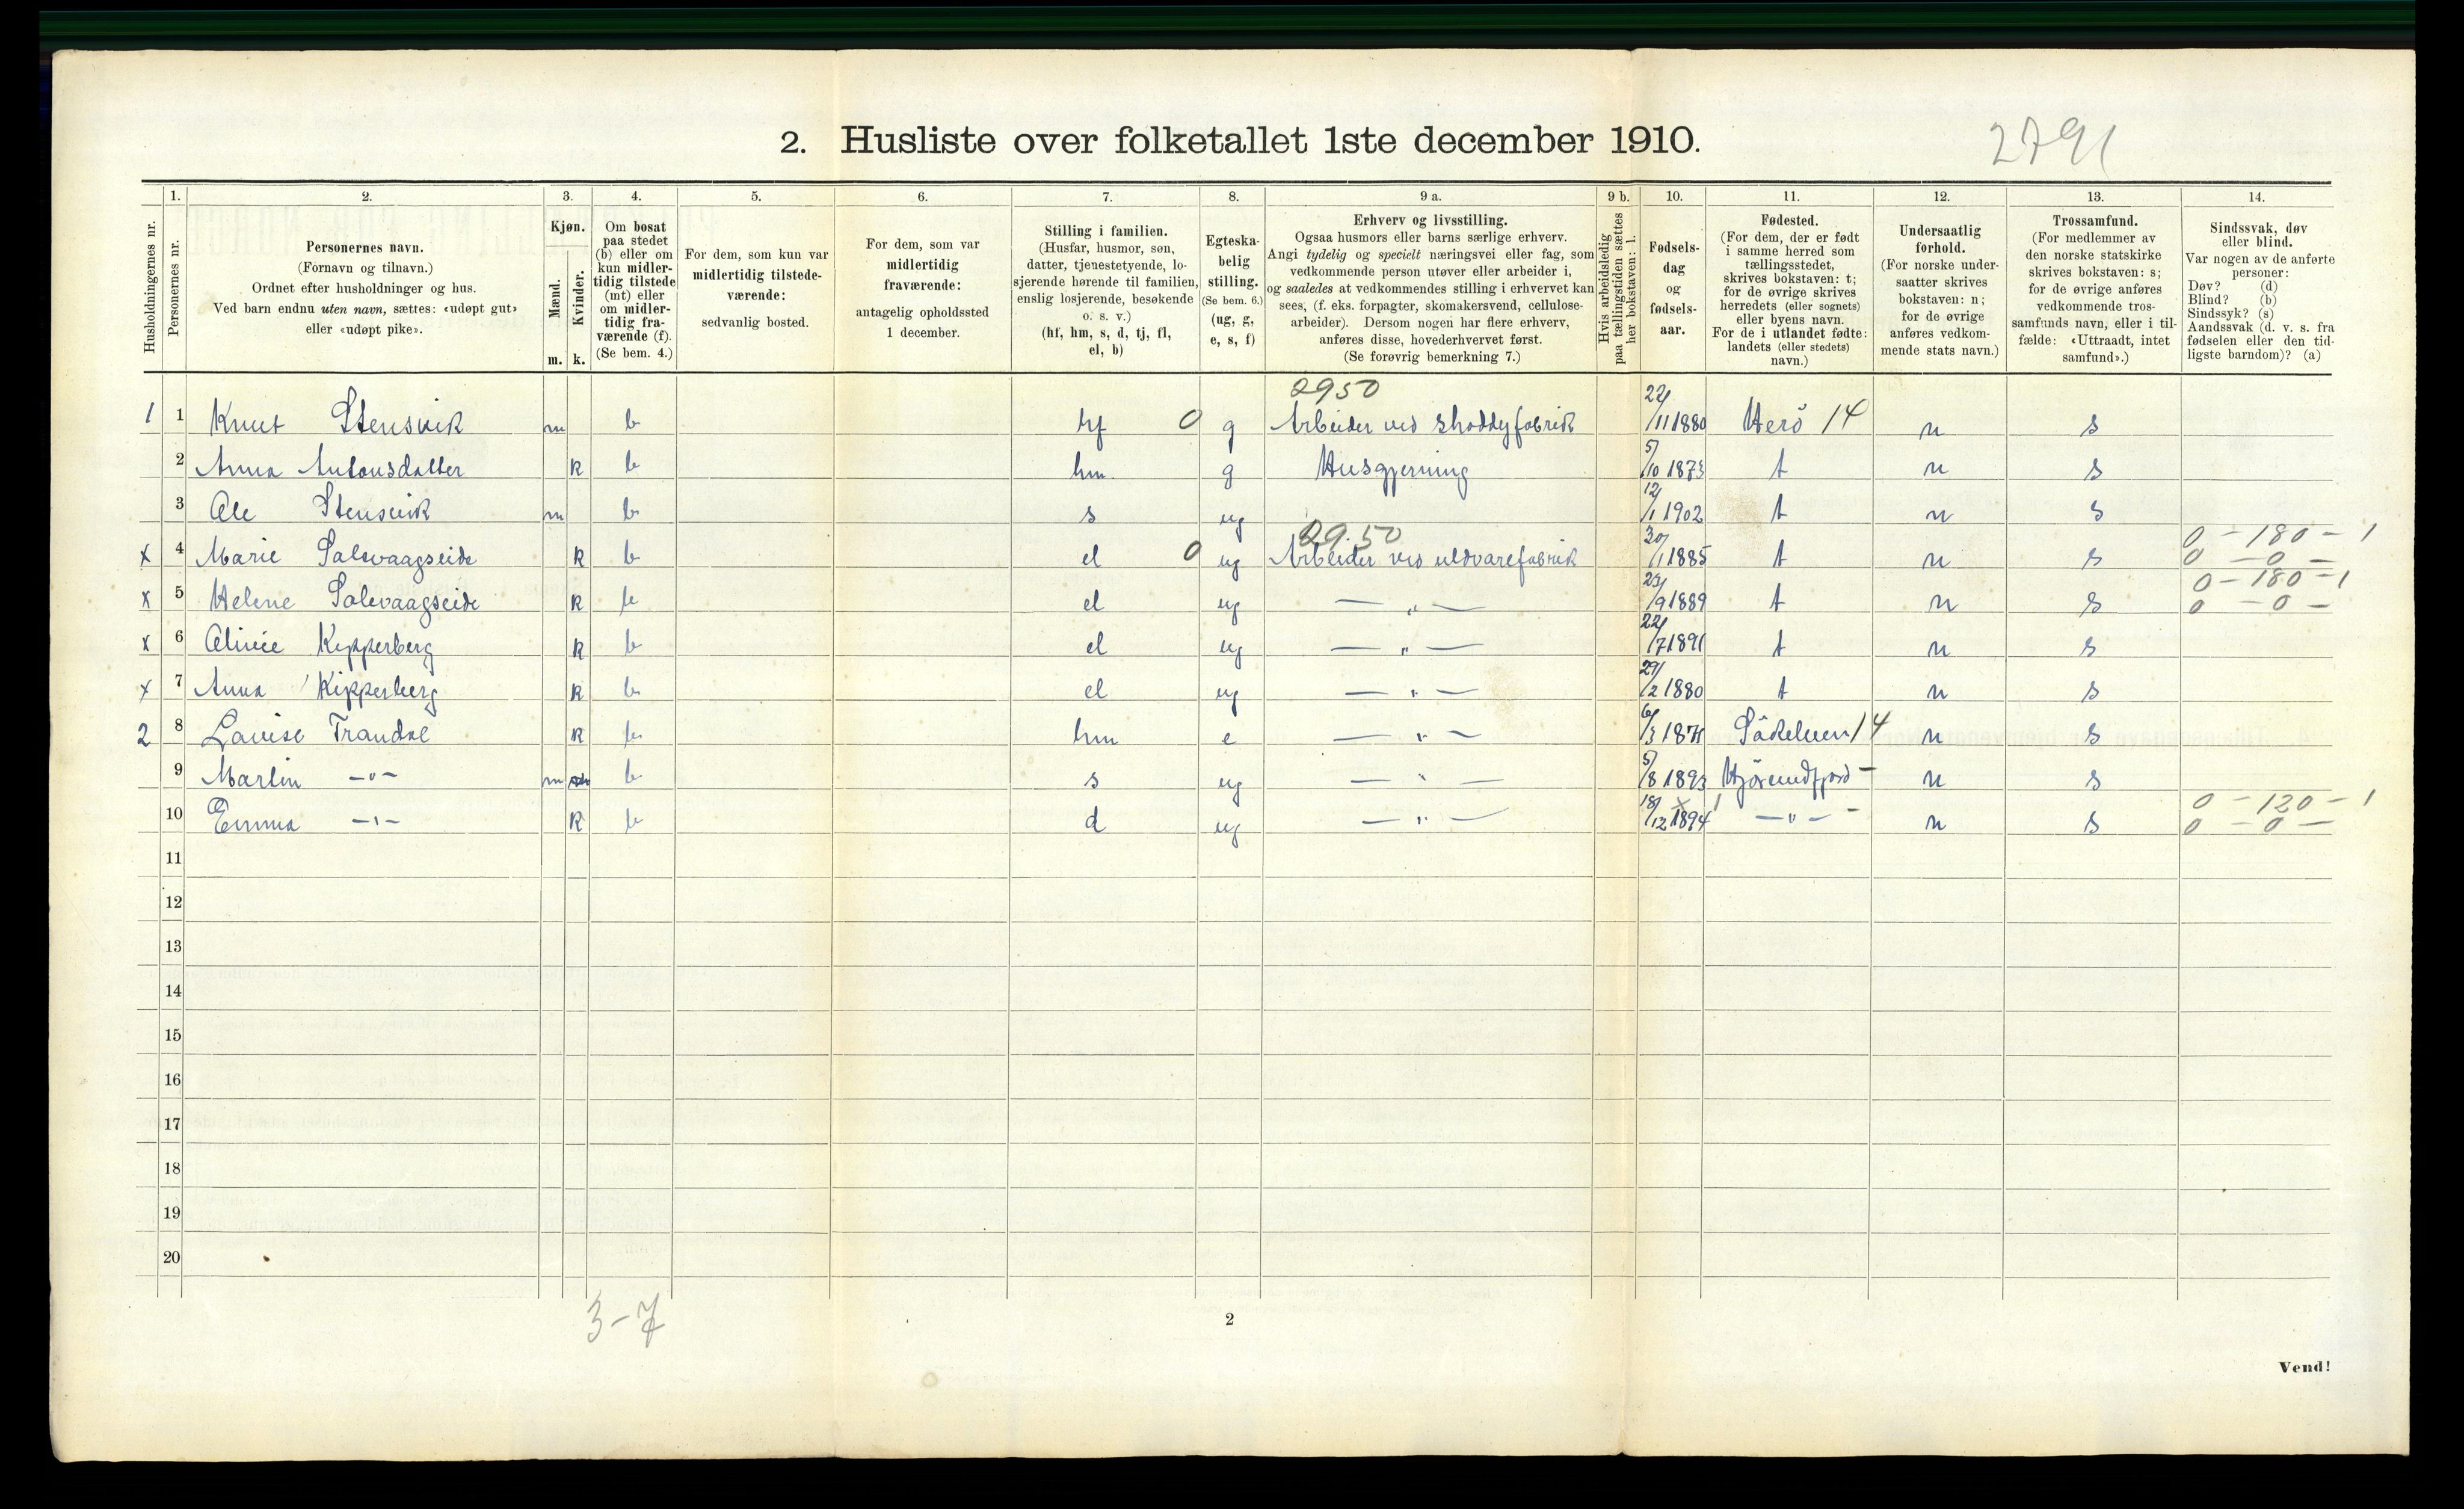 2. Husliste over folketallet 1ste december 1910.
2791
1. 2. 3. 4. 5. 6. 7. 8. 9 a. 9 b. 10. 11. 12. 13. 14.
Husholdningernes nr.
Personernes nr.
Personernes navn.
(Fornavn og tilnavn.)
Ordnet efter husholdninger og hus.
Ved barn endnu uten navn, sættes: «udøpt gut»
eller «udøpt pike».
Kjøn.
Mænd.
Kvinder.
m. k.
Om bosat
paa stedet
(b) eller om
kun midler-
tidig tilstede
(mt) eller
om midler-
tidig fra-
værende (f).
(Se bem. 4.)
For dem, som kun var
midlertidig tilstede-
værende:
sedvanlig bosted.
For dem, som var
midlertidig
fraværende:
antagelig opholdssted
1 december.
Stilling i familien.
(Husfar, husmor, søn,
datter, tjenestetyende, lo-
sjerende hørende til familien,
enslig losjerende, besøkende
o. s. v.)
(hf, hm, s, d, tj, fl,
el, b)
Egteska-
belig
stilling.
(Se bem. 6.)
(ug, g,
e, s, f)
Erhverv og livsstilling.
Ogsaa husmors eller barns særlige erhverv.
Angi tydelig og specielt næringsvei eller fag, som
vedkommende person utøver eller arbeider i,
og saaledes at vedkommendes stilling i erhvervet kan
sees, (f. eks. forpagter, skomakersvend, cellulose-
arbeider). Dersom nogen har flere erhverv,
anføres disse, hovederhvervet først.
(Se forøvrig bemerkning 7.)
Hvis arbeidsledig
paa tællingstiden sættes
her bokstaven: l.
Fødsels-
dag
og
fødsels-
aar.
Fødested.
(For dem, der er født
i samme herred som
tællingsstedet,
skrives bokstaven: t;
for de øvrige skrives
herredets (eller sognets)
eller byens navn.
For de i utlandet fødte:
landets (eller stedets)
navn.)
Undersaatlig
forhold.
(For norske under-
saatter skrives
bokstaven: n;
for de øvrige
anføres vedkom-
mende stats navn.)
Trossamfund.
(For medlemmer av
den norske statskirke
skrives bokstaven: s;
for de øvrige anføres
vedkommende tros-
samfunds navn, eller i til-
fælde: «Uttraadt, intet
samfund».)
Sindssvak, døv
eller blind.
Var nogen av de anførte
personer:
Døv? (d)
Blind? (b)
Sindssyk? (s)
Aandssvak (d. v. s. fra
fødselen eller den tid-
ligste barndom)? (a)
2950
1 1 Knut Stensvik m b hf 0 g Arbeider ved shoddyfabrik 22/11 1880 Herö 14 n s
2 Anna Antonsdatter k b hm g Husgjerning 5/10 1873 t n s
3 Ole Stensvik m b s ug 12/1 1902 t n s
29.50 0 - 180 - 1
x 4 Marie Salsvaagseide k b el 0 ug Arbeider ved uldvarefabrik 30/1 1885 t n s 0 - 0 -
0 - 180 - 1
x 5 Helene Salsvaagseide k b el ug — „ — 23/9 1889 t n s 0 - 0 -
x 6 Kipperberg k b el ug — „ — 22/7 1891 t n s
x 7 Anna Kipperberg k b el ug — „ — 29/2 1880 t n s
2 8 Lovise Trandal k b hm e — „ — 6/3 1871 14 n s
9 Martin — „ — m b s ug — „ — 5/8 1893 Hjörundfjord - n s
0 - 120 - 1
10 Emma — „ — k b d ug — „ — 18/12 1894 — „ — - n s 0 - 0 -
11
12
13
14
15
16
17
18
19
20
3-7
2
Vend!